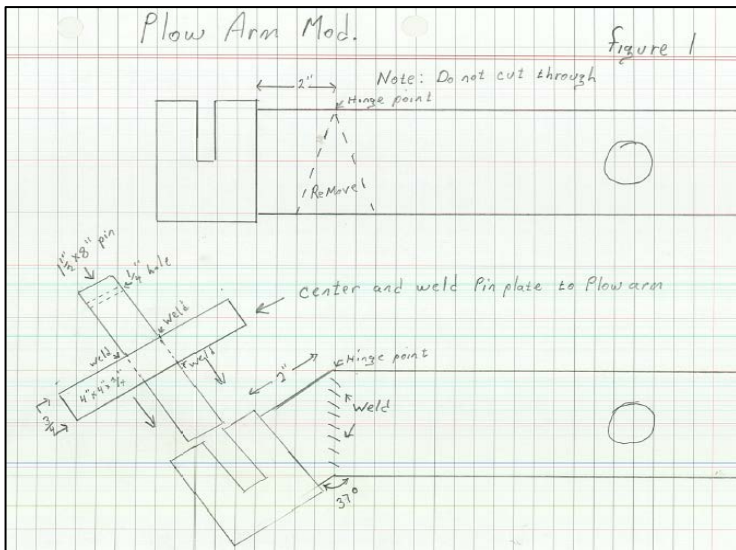 Plow Arm Mod.
figure 1
Note: Do not cut through
2"
Hinge point
ReMove
1½" x 8" pin
¼" hole
center and weld Pin plate to Plow arm
weld
weld
weld
4" x 4" x ¾"
¾"
2"
Hinge point
Weld
37°